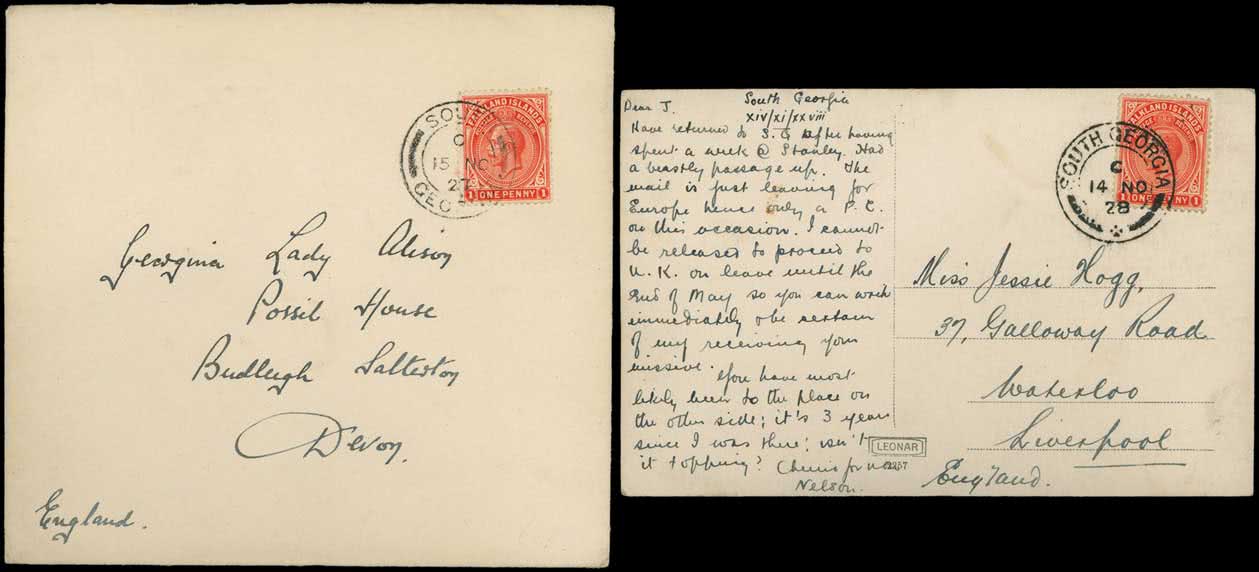 SOU
FALKLAND ISLANDS
C
15 NO
27
GEO
1 ONE PENNY 1
Georgina Lady Alison
Possil House
Budleigh Salterton
Devon.
England.
Dear J. South Georgia
XIV/XI/XXVIII
Have returned to S.G after having
spent a week @ Stanley. Had
a beastly passage up. The
mail is just leaving for
Europe hence only a P.C.
on this occasion. I cannot
be released to proceed to
U.K. on leave until the
End of May so you can write
immediately & be certain
of my receiving your
missive. You have most
likely been to the place on
the other side; it's 3 years
since I was there; isn't
it topping? Cheerio for now
Nelson.
LEONAR
SOUTH GEORGIA
C
14 NO
28
FALKLAND ISLANDS
1 ONE PENNY 1
Miss Jessie Hogg,
37, Galloway Road
Waterloo
Liverpool
England.